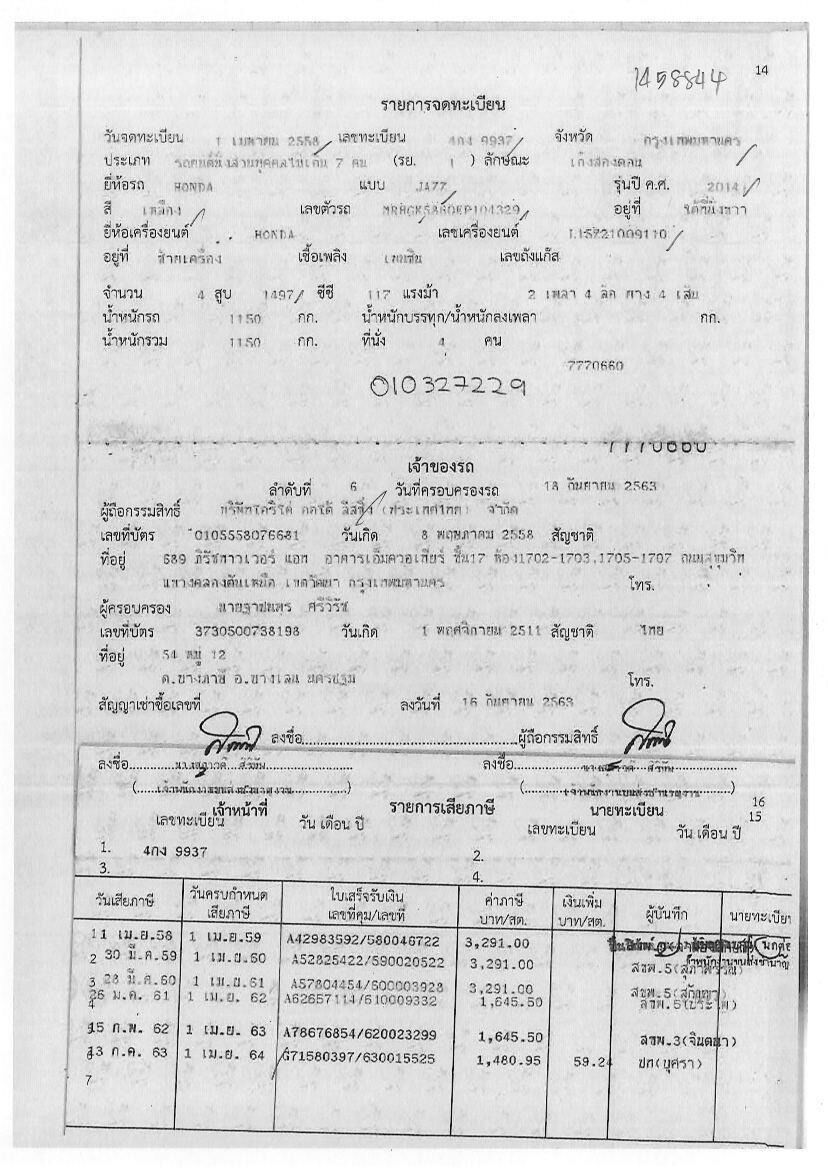 1458844
14
รายการจดทะเบียน
วันจดทะเบียน 1 เมษายน 2558 เลขทะเบียน 4กง 9937 จังหวัด กรุงเทพมหานคร
ประเภท รถยนต์นั่งส่วนบุคคลไม่เกิน 7 คน (รย. 1 ) ลักษณะ เก๋งสองตอน
ยี่ห้อรถ HONDA แบบ JA77 รุ่นปี ค.ศ. 2014
สี เหลือง เลขตัวรถ อยู่ที่ ใต้ที่นั่งขวา
ยี่ห้อเครื่องยนต์ HONDA เลขเครื่องยนต์ L15Z21009110
อยู่ที่ ซ้ายเครื่อง เชื้อเพลิง เบนซิน เลขถังแก๊ส
จำนวน 4 สูบ 1497 ซีซี 117 แรงม้า 2 เพลา 4 ล้อ ยาง 4 เส้น
น้ำหนักรถ 1150 กก. น้ำหนักบรรทุก/น้ำหนักลงเพลา กก.
น้ำหนักรวม 1150 กก. ที่นั่ง 4 คน
7770660
010327229
7770660
เจ้าของรถ
ลำดับที่ 6 วันที่ครอบครองรถ 18 กันยายน 2563
ผู้ถือกรรมสิทธิ์ ลีสซิ่ง (ประเทศไทย) จำกัด
เลขที่บัตร 0105558076681 วันเกิด 8 พฤษภาคม 2558 สัญชาติ
ที่อยู่ 689 ภิรัชทาวเวอร์ แอท อาคารเอ็มควอเทียร์ ชั้น17 ห้อง1702-1703,1705-1707 ถนนสุขุมวิท
แขวงคลองตันเหนือ เขตวัฒนา กรุงเทพมหานคร โทร.
ผู้ครอบครอง ศรีวิรัช
เลขที่บัตร 3730500738198 วันเกิด 1 พฤศจิกายน 2511 สัญชาติ ไทย
ที่อยู่ 54 หมู่ 12
ต.บางภาษี อ.บางเลน นครปฐม โทร.
สัญญาเช่าซื้อเลขที่ ลงวันที่ 16 กันยายน 2563
ลงชื่อ ผู้ถือกรรมสิทธิ์
ลงชื่อ ลงชื่อ
(เจ้าพนักงานขนส่งชำนาญงาน) (เจ้าพนักงานขนส่งชำนาญงาน)
เจ้าหน้าที่ รายการเสียภาษี นายทะเบียน 16
เลขทะเบียน วัน เดือน ปี เลขทะเบียน วัน เดือน ปี 15
1. 4กง 9937 2.
3. 4.
วันเสียภาษี วันครบกำหนดเสียภาษี ใบเสร็จรับเงิน เลขที่คุม/เลขที่ ค่าภาษี บาท/สต. เงินเพิ่ม บาท/สต. ผู้บันทึก นายทะเบีย
1 1 เม.ย.58 1 เม.ย.59 A42983592/580046722 3,291.00
2 30 มี.ค.59 1 เม.ย.60 A52825422/590020522 3,291.00 สขพ.5(สุภาพรรณ)
3 28 มี.ค.60 1 เม.ย.61 A57804454/600003928 3,291.00 สขพ.5(สุกัญญา)
4 26 ม.ค. 61 1 เม.ย. 62 A62657114/610009332 1,645.50 สขพ.5(ประไพ)
15 ก.พ. 62 1 เม.ย. 63 A78676854/620023299 1,645.50 สขพ.3(จินตนา)
13 ก.ค. 63 1 เม.ย. 64 G71580397/630015525 1,480.95 59.24 ขก(บุศรา)
7